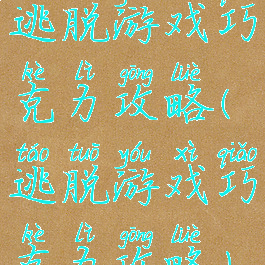 逃脱游戏巧
kè lì gōng lüè
克力攻略(
táo tuō yóu xì qiǎo
逃脱游戏巧
kè lì gōng lüè
克力攻略)